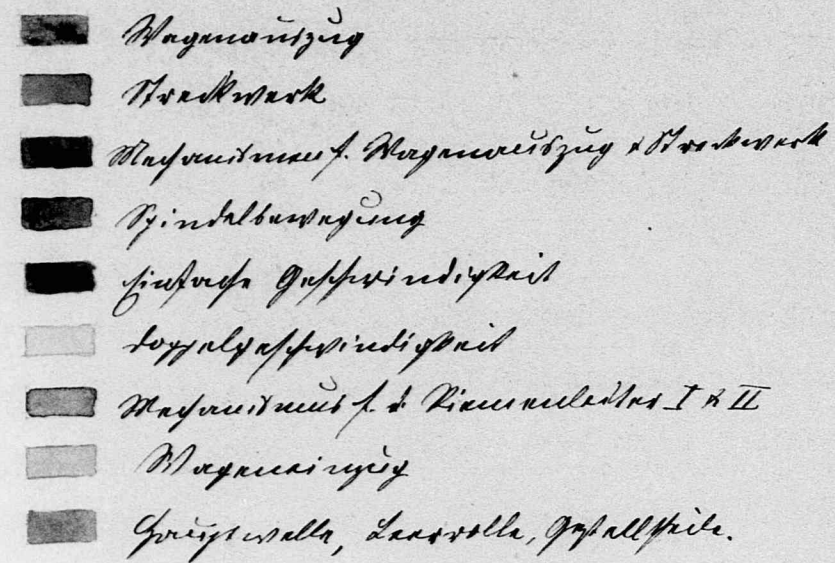 Wagenauszug
Streckwerk
Mechanismen f. Wagenauszug & Streckwerk
Spindelbewegung
Einfache Geschwindigkeit
Doppelgeschwindigkeit
Mechanismus f. d. Riemenleiter I & II
Wageneinzug
Hauptwelle, Leerrolle, Gestelltheile.